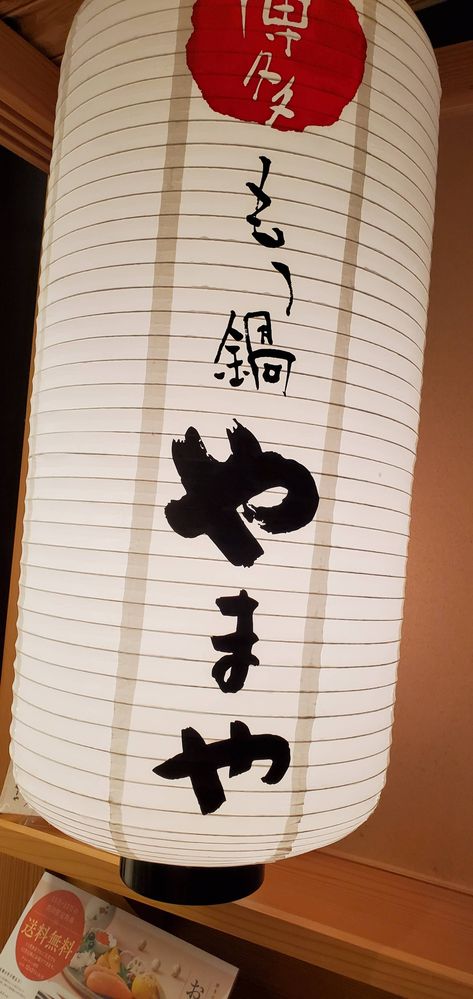 博多
もつ鍋
やまや
送料無料
お